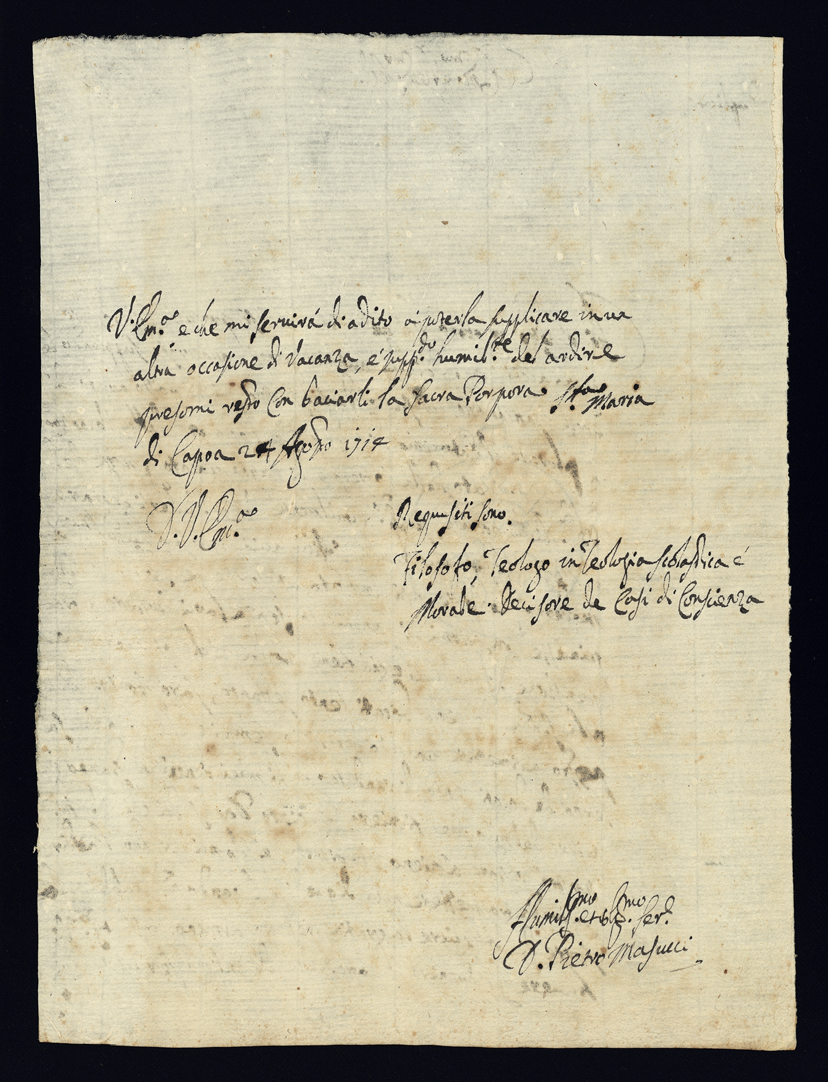 V. Em.ᵃ e che mi servirá di adito a poterla supplicare in un
altra occasione di Vacanza, e supp.ᵈᵒ humil.ᵗᵉ del ardire
presomi resto con baciarli la sacra Porpora. S.ᵗᵃ Maria
di Capoa 24 Agosto 1714
D. V. Em.ᵃ
Requisiti sono.
Filosofo, Teologo in Teologia scolastica é
Morale. Decisore de Casi di Conscienza
Humil.ᵐᵒ et ser.
D. Pietro Masucci